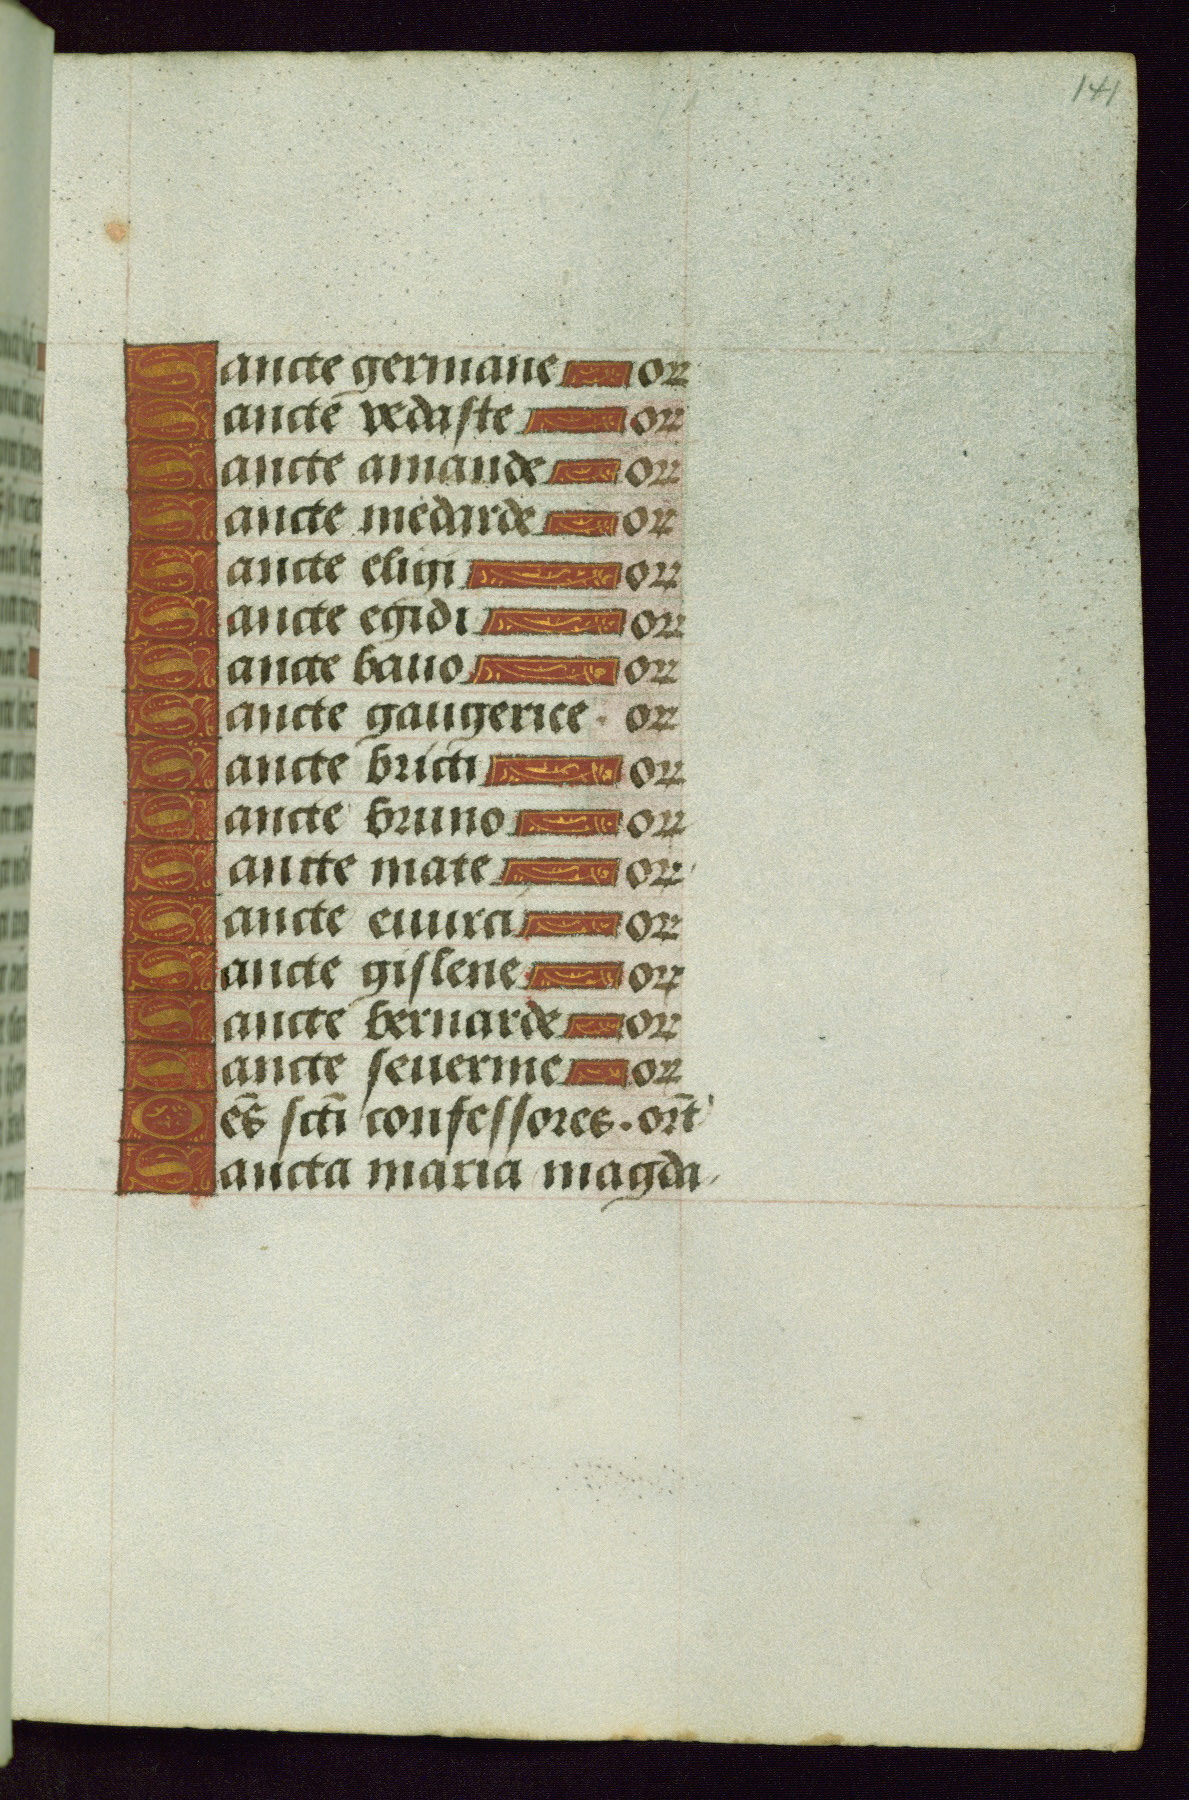 141
Sancte germane or
Sancte vedaste or
Sancte amande or
Sancte medarde or
Sancte eligi or
Sancte egidi or
Sancte bauo or
Sancte gaugerice · or
Sancte bricti or
Sancte bruno or
Sancte mate or
Sancte euurci or
Sancte gislene or
Sancte bernarde or
Sancte seuerine or
Oēs sctī confessores · orīt
Sancta maria magda